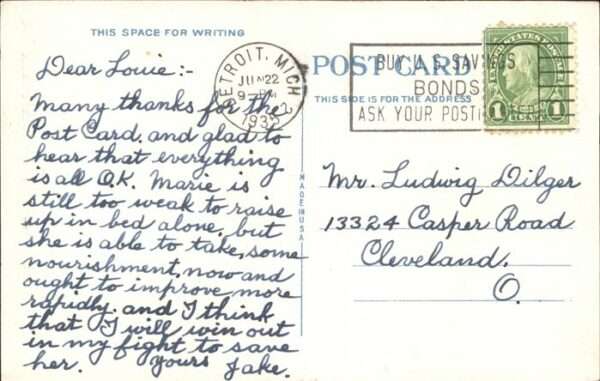 THIS SPACE FOR WRITING
Dear Louie:-
Many thanks for the
Post Card. and glad to
hear that everything
is all O.K. Marie is
still too weak to raise
up in bed alone, but
she is able to take, some
nourishment, now and
ought to improve more
rapidly. and I think
that I will win out
in my fight to save
her. Yours Jake.
MADE IN U.S.A.
DETROIT, MICH.
JUN 22
9 PM
1935
POST CARD
THIS SIDE IS FOR THE ADDRESS
BUY U.S. SAVINGS
BONDS
ASK YOUR POSTMASTER
UNITED STATES POSTAGE
1 1
Mr. Ludwig Dilger
13324 Casper Road
Cleveland.
O.